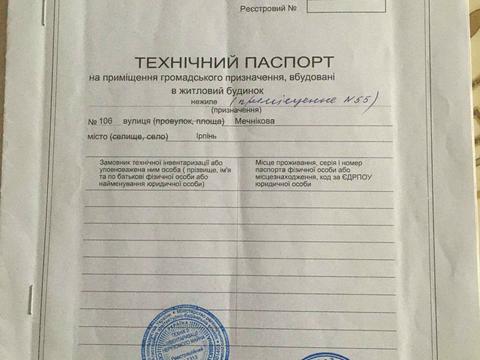 Реєстровий №
ТЕХНІЧНИЙ ПАСПОРТ
на приміщення громадського призначення, вбудовані
в житловий будинок
нежиле (приміщення N55)
(призначення)
№ 106 вулиця (провулок, площа) Мечнікова
місто (селище, село) Ірпінь
Замовник технічної інвентаризації або
уповноважена ним особа ( прізвище, ім'я
та по батькові фізичної особи або
найменування юридичної особи)
Місце проживання, серія і номер
паспорта фізичної особи або
місцезнаходження, код за ЄДРПОУ
юридичної особи
УКРАЇНА